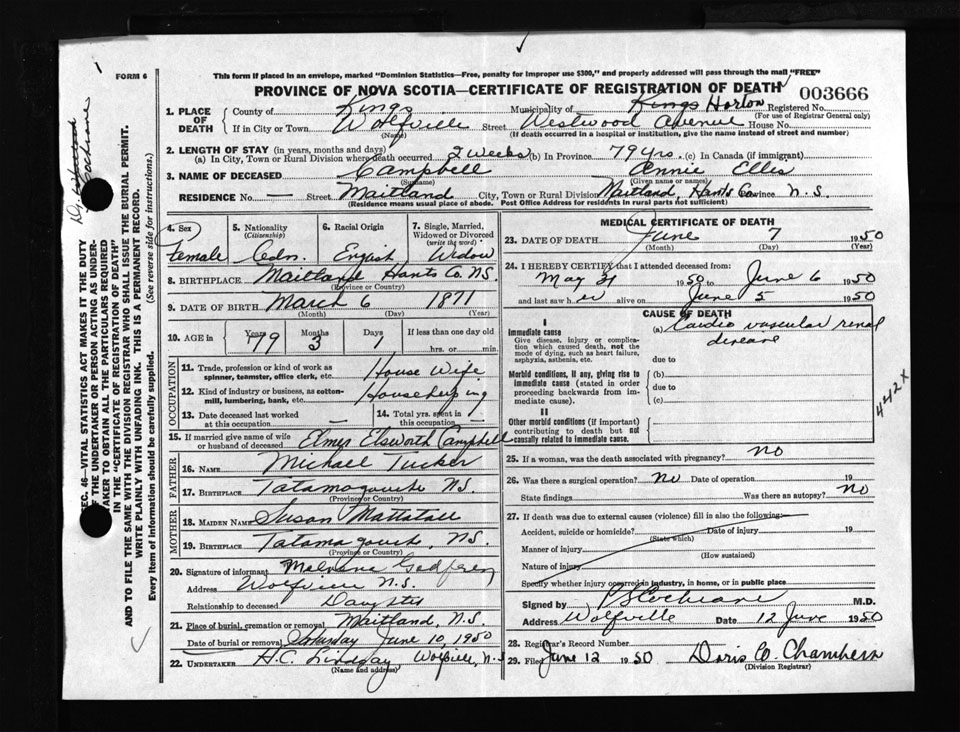 FORM 6
This form if placed in an envelope, marked "Dominion Statistics—Free, penalty for improper use $300," and properly addressed will pass through the mail "FREE"
PROVINCE OF NOVA SCOTIA—CERTIFICATE OF REGISTRATION OF DEATH 003666
1. PLACE OF DEATH
County of Kings Municipality of Kings Horton Registered No.
(For use of Registrar General only)
If in City or Town Wolfville Street Westwood Avenue House No.
(Name) (If death occurred in a hospital or institution, give the name instead of street and number)
2. LENGTH OF STAY (in years, months and days)
(a) In City, Town or Rural Division where death occurred 2 weeks (b) In Province 79 yrs. (c) In Canada (if immigrant)
3. NAME OF DECEASED Campbell Annie Ellis
(Surname) (Given name or names)
RESIDENCE No. — Street Maitland City, Town or Rural Division Maitland, Hants Co. Province N.S.
(Residence means usual place of abode. Post Office Address for residents in rural parts not sufficient)
4. Sex Female
5. Nationality (Citizenship) Cdn.
6. Racial Origin English
7. Single, Married, Widowed or Divorced (write the word) Widow
8. BIRTHPLACE Maitland Hants Co. N.S.
(Province or Country)
9. DATE OF BIRTH March 6 1871
(Month) (Day) (Year)
10. AGE in Years 79 Months 3 Days 1 If less than one day old
hrs. or min.
OCCUPATION
11. Trade, profession or kind of work as spinner, teamster, office clerk, etc. House Wife
12. Kind of industry or business, as cotton-mill, lumbering, bank, etc. Housekeeping
13. Date deceased last worked at this occupation —
14. Total yrs. spent in this occupation —
15. If married give name of wife or husband of deceased Elmer Elsworth Campbell
FATHER
16. NAME Michael Tucker
17. BIRTHPLACE Tatamagouche N.S.
(Province or Country)
MOTHER
18. MAIDEN NAME Susan Mattatall
19. BIRTHPLACE Tatamagouche, N.S.
(Province or Country)
20. Signature of informant Godfrey
Address Wolfville N.S.
Relationship to deceased Daughter
21. Place of burial, cremation or removal Maitland, N.S.
Date of burial or removal Saturday June 10, 1950
22. UNDERTAKER H.C. Lindsay Wolfville, N.S.
(Name and address)
MEDICAL CERTIFICATE OF DEATH
23. DATE OF DEATH June 7 1950
(Month) (Day) (Year)
24. I HEREBY CERTIFY that I attended deceased from:
May 31 1950 to June 6 1950
and last saw her alive on June 5 1950
CAUSE OF DEATH
I
Immediate cause
Give disease, injury or complication which caused death, not the mode of dying, such as heart failure, asphyxia, asthenia, etc.
(a) Cardio vascular renal disease
due to
Morbid conditions, if any, giving rise to immediate cause (stated in order proceeding backwards from immediate cause).
(b)
due to
(c)
442x
II
Other morbid conditions (if important) contributing to death but not causally related to immediate cause.
25. If a woman, was the death associated with pregnancy? No
26. Was there a surgical operation? No Date of operation 19
State findings Was there an autopsy? No
27. If death was due to external causes (violence) fill in also the following:—
Accident, suicide or homicide? Date of injury 19
(State which)
Manner of injury
(How sustained)
Nature of injury
Specify whether injury occurred in industry, in home, or in public place
Signed by Cochrane M.D.
Address Wolfville Date 12 June 1950
28. Registrar's Record Number
29. Filed June 12 1950 Doris C. Chambers
(Division Registrar)
SEC. 46—VITAL STATISTICS ACT MAKES IT THE DUTY
OF THE UNDERTAKER OR PERSON ACTING AS UNDER-
TAKER TO OBTAIN ALL THE PARTICULARS REQUIRED
IN THE "CERTIFICATE OF REGISTRATION OF DEATH"
AND TO FILE THE SAME WITH THE DIVISION REGISTRAR WHO SHALL ISSUE THE BURIAL PERMIT.
WRITE PLAINLY WITH UNFADING INK. THIS IS A PERMANENT RECORD.
Every item of information should be carefully supplied. (See reverse side for instructions.)
Cochrane